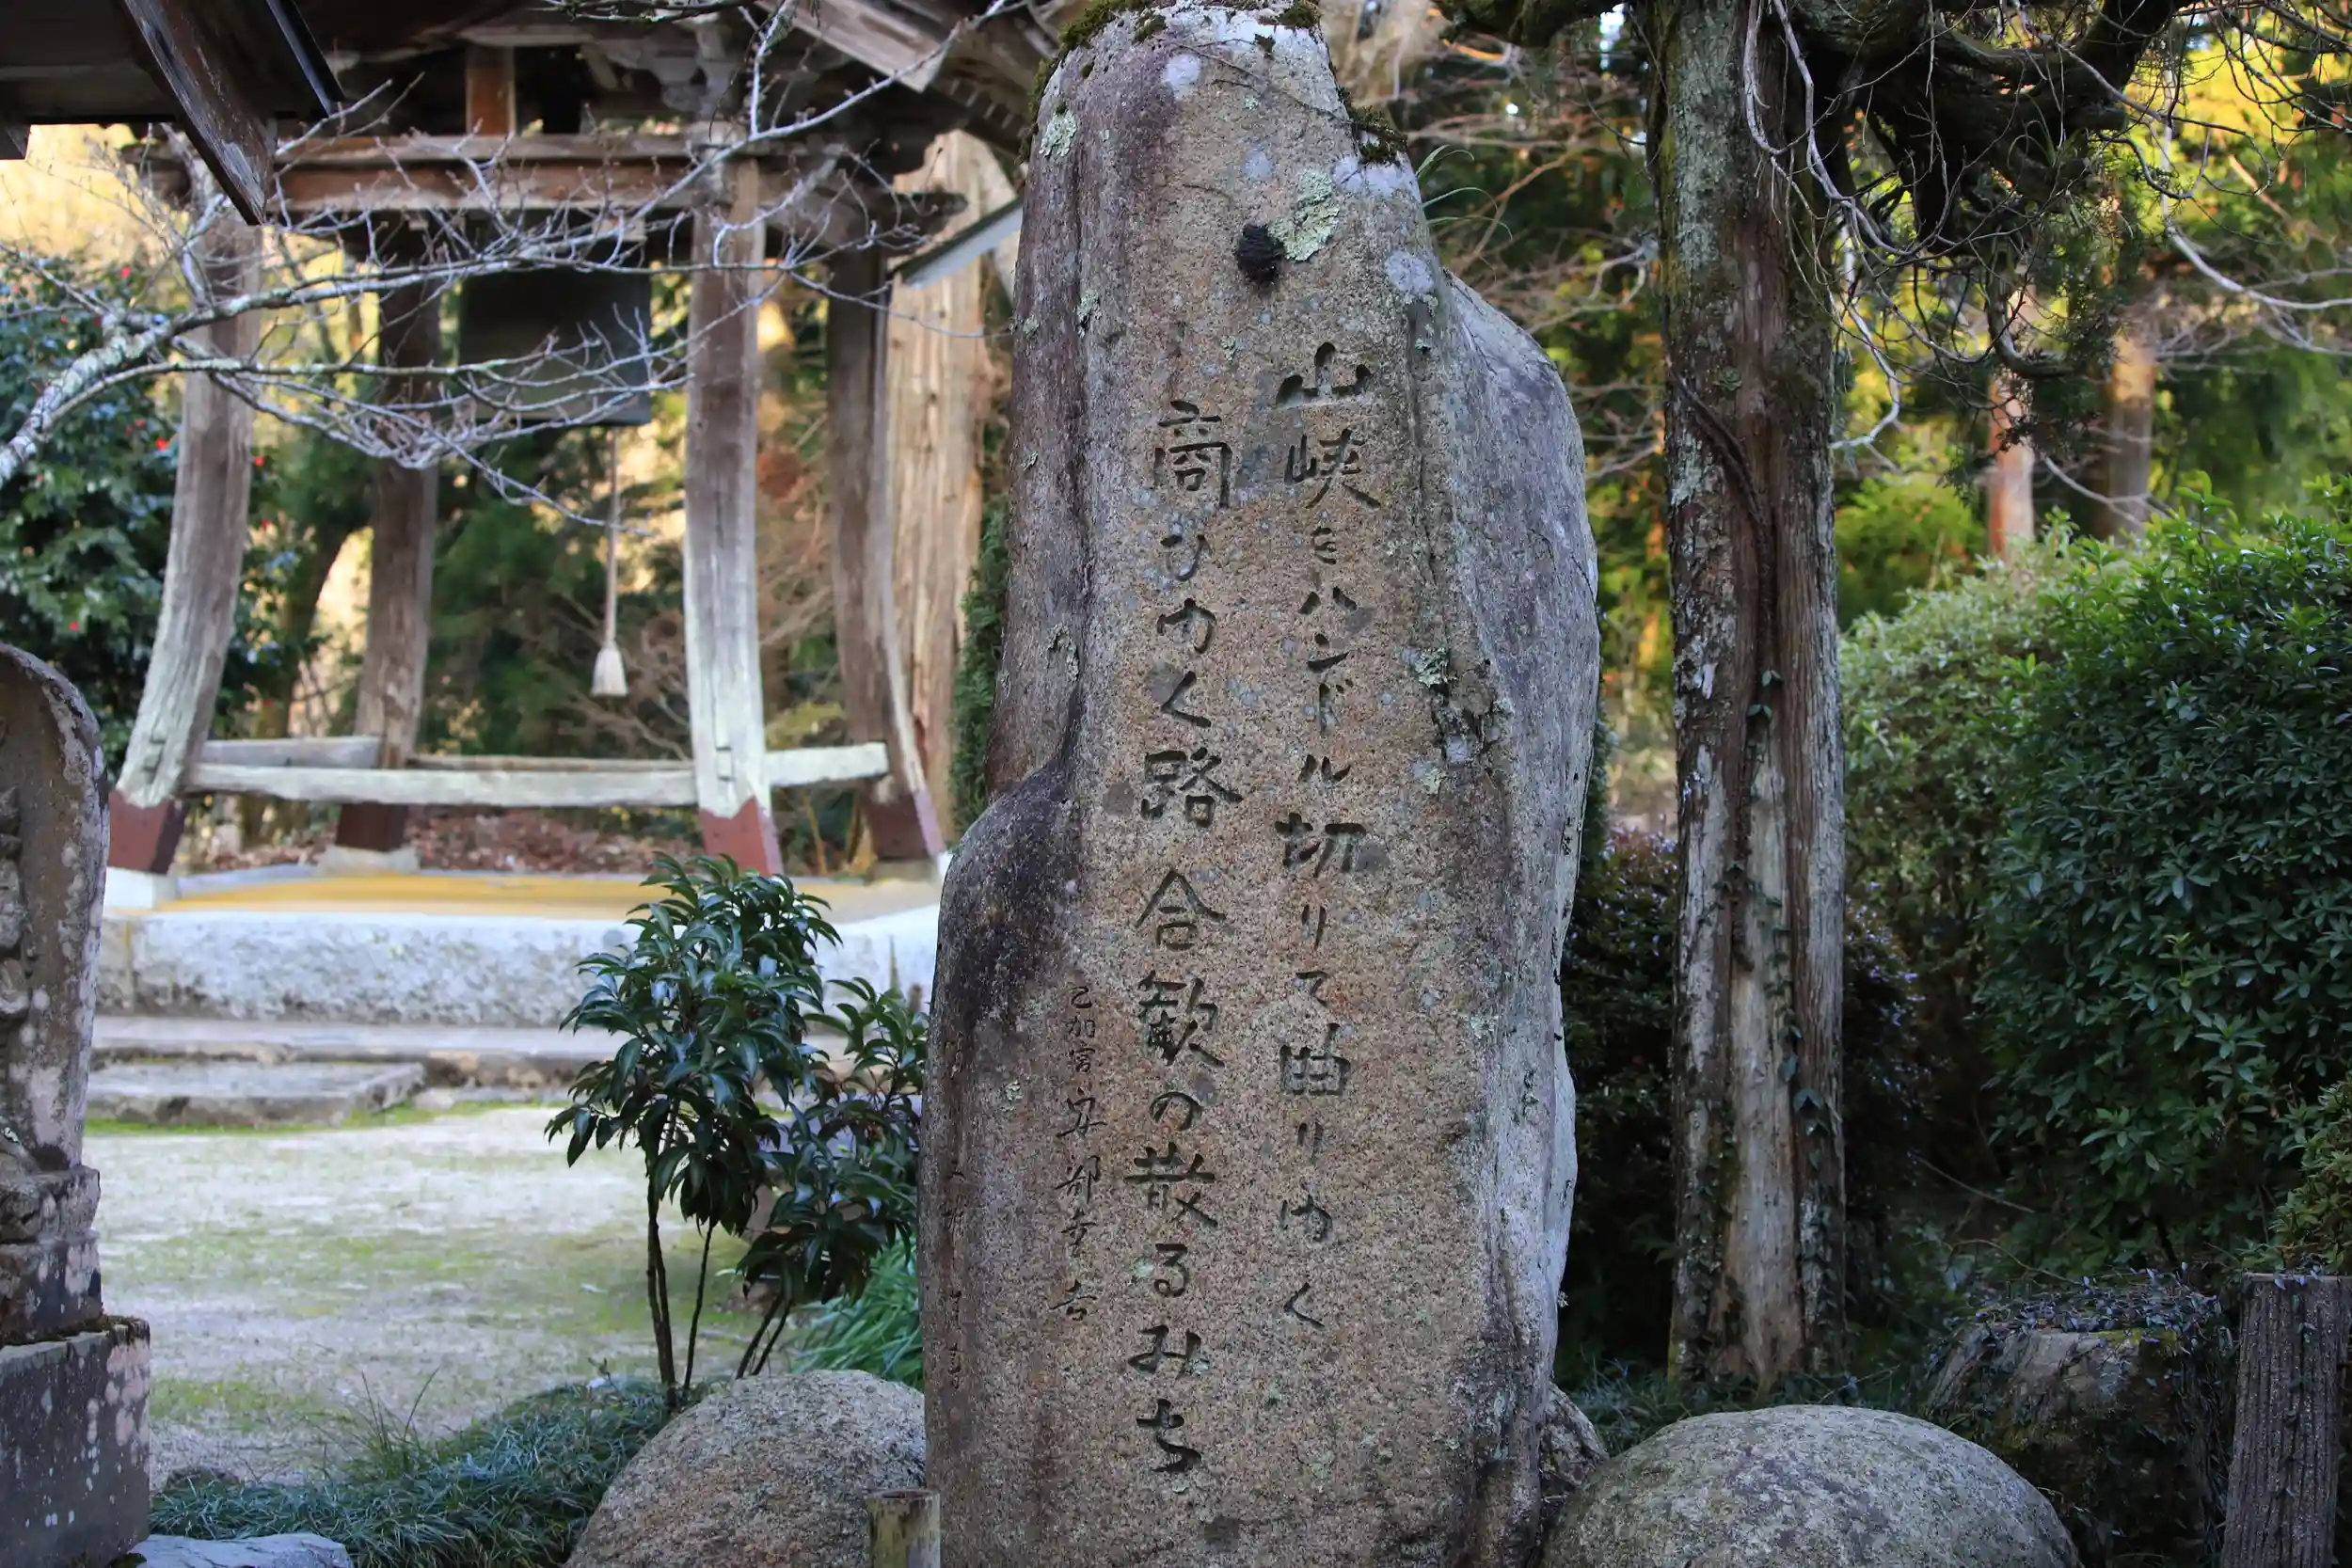 山峡をハンドル切りて曲りゆく
商ひゆく路合歓の散るみち